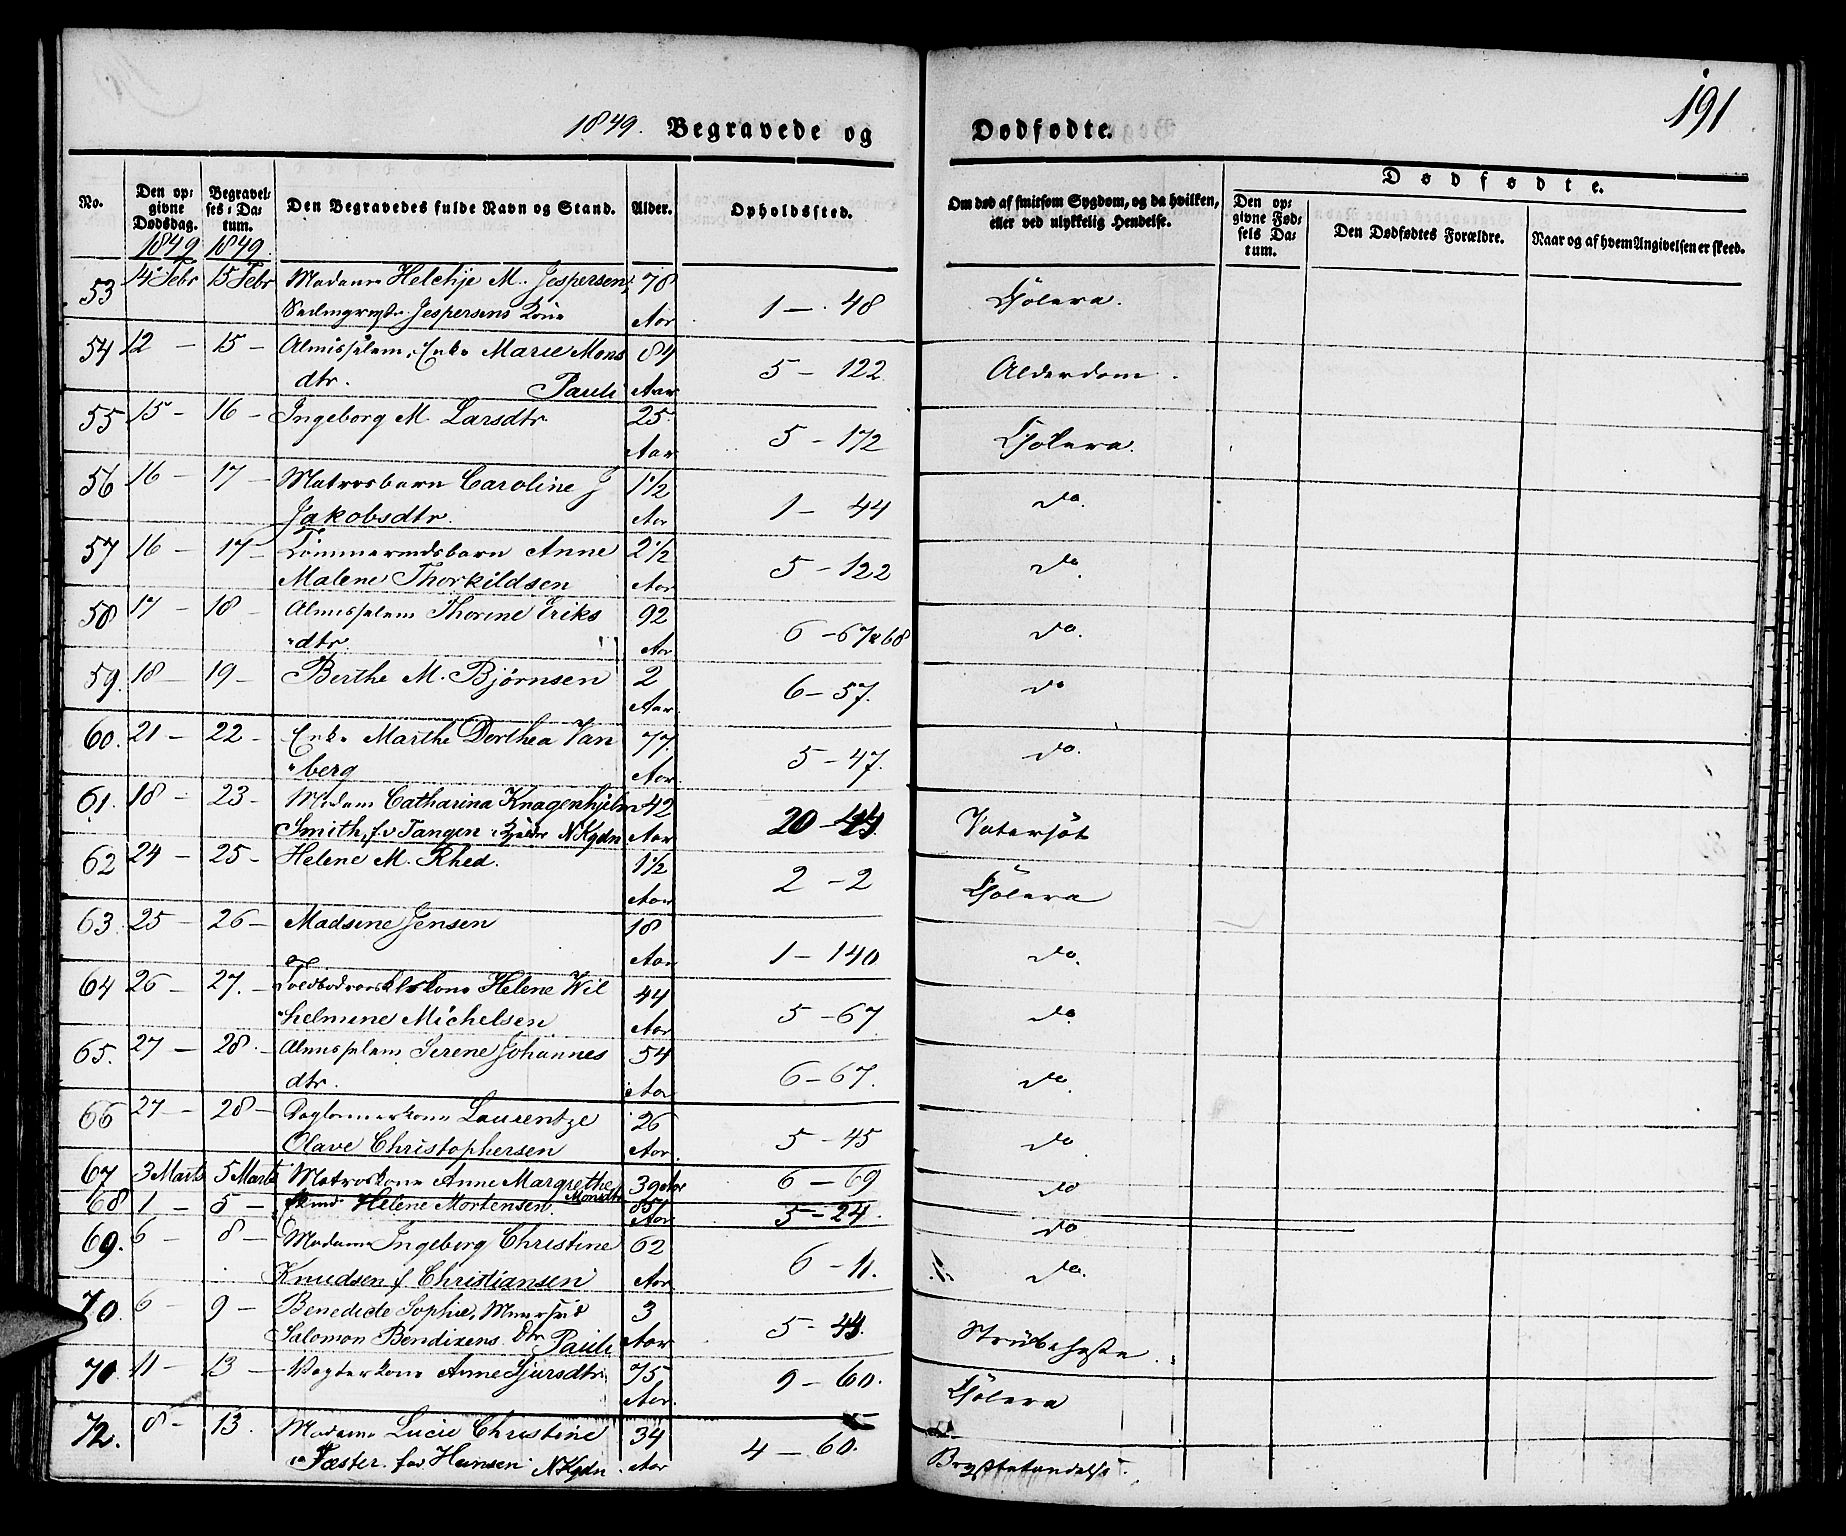 191
1849. Begravede og Dødfødte.
No. Den opgivne Dødsdag. Begravelses-Datum. Den Begravedes fulde Navn og Stand. Alder. Opholdssted. Om død af smitsom Sygdom, og da hvilken, eller ved ulykkelig Hendelse. Dødfødte.
Den opgivne Fødsels Datum. Den Dødfødtes Forældre. Naar og af hvem Angivelsen er skeed.
1849 1849
53 14 Febr 15 Febr Madame Helchje M. Jespersen, 78
Jespersens Kone Aar 1 – 48 Cholera.
54 12 – 15 – Almisselem, Enke Marie Mons 84
dtr. Pauli Aar 5 – 122 Alderdom.
55 15 – 16 – Ingeborg M. Larsdtr 25
Aar 5 – 172 Cholera.
56 16 – 17 – Matrosbarn Caroline J 1 1/2
Jakobsdtr. Aar 1 – 44 do
57 16 – 17 – Tømmermdsbarn Anne 2 1/2
Malene Thorkildsen Aar 5 – 122 do
58 17 – 18 – Almisselem Thorine Eriks 92
dtr. Aar 6 – 67 & 68 do
59. 18 – 19 – Berthe M. Bjørnsen 2
Aar 6 – 57. do
60. 21 – 22 – Enke Marthe Dorthea Van 77
berg Aar 5 – 47. do
61. 18 – 23 – Madam Catharina Knagenhjelm 42
Smith, f. v Tangen NKgdn Aar 20 – Vatersot
62 24 – 25 – Helene M. Rhed. 1 1/2
Aar 2 – 2 Cholera
63. 25 – 26 – Madsine Jensen 18
Aar 1 – 140 do
64 26 – 27. – Helene Wil 44
helmine Michelsen Aar 5 – 67 do
65. 27 – 28. – Almisselem Serene Johannes 54
dtr. Aar 6 – 67. do
66 27 – 28 – Daglønnerkone Laurentze 26
Olave Christophersen Aar 5 – 45 do
67 3 Marts 5 Marts Matroskone Anne Margrethe 39 Aar 6 – 69 do
Monsdtr
68 1 – 5 – Helene Mortensen. Aar 5 – 24. do
69. 6 – 8 – Madame Ingeborg Christine 62
Knudsen f. Christiansen Aar 6 – 11. do
70. 6 – 9 – Benedicte Sophie, 3
Salomon Bendixens Dtr Pauli Aar 5 – 44. Strubehoste
70. 11 – 13 – Vægterkone Anne Sjursdtr 75
Aar 9 – 60. Cholera
72. 8 – 13. Madame Lucie Christine 34
Fæster. fød Hansen NKgdn. Aar 4 – 60. Brystbetændelse